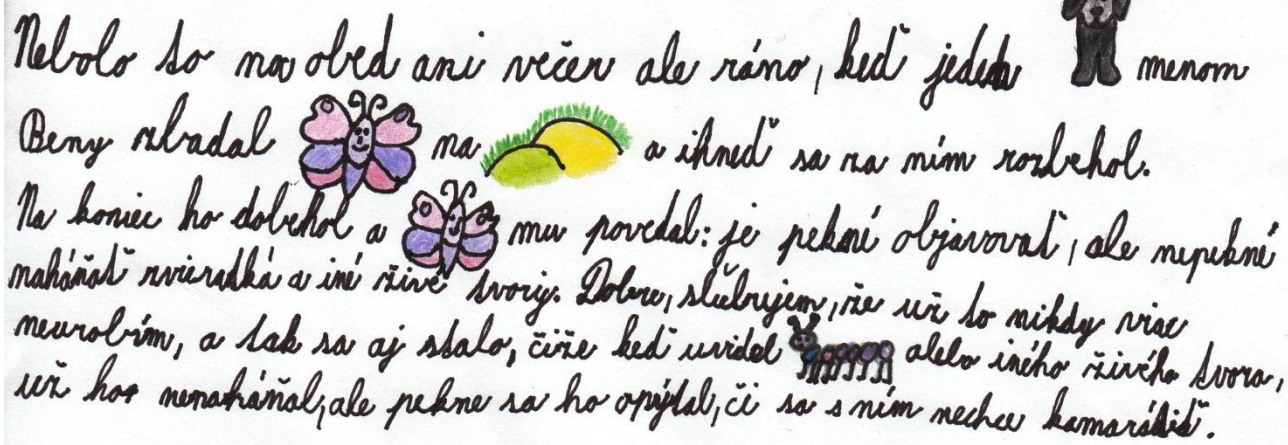 Nebolo to na obed ani večer ale ráno, keď jeden menom
Beny zbadal na a ihneď sa za ním rozbehol.
Na koniec ho dobehol a mu povedal: je pekné objavovať, ale nepekné
naháňať zvieratká a iné živé tvory. Dobre, sľubujem, že už to nikdy viac
neurobím, a tak sa aj stalo, čiže keď uvidel alebo iného živého tvora,
už ho nenaháňal, ale pekne sa ho opýtal, či sa s ním nechce kamarátiť.